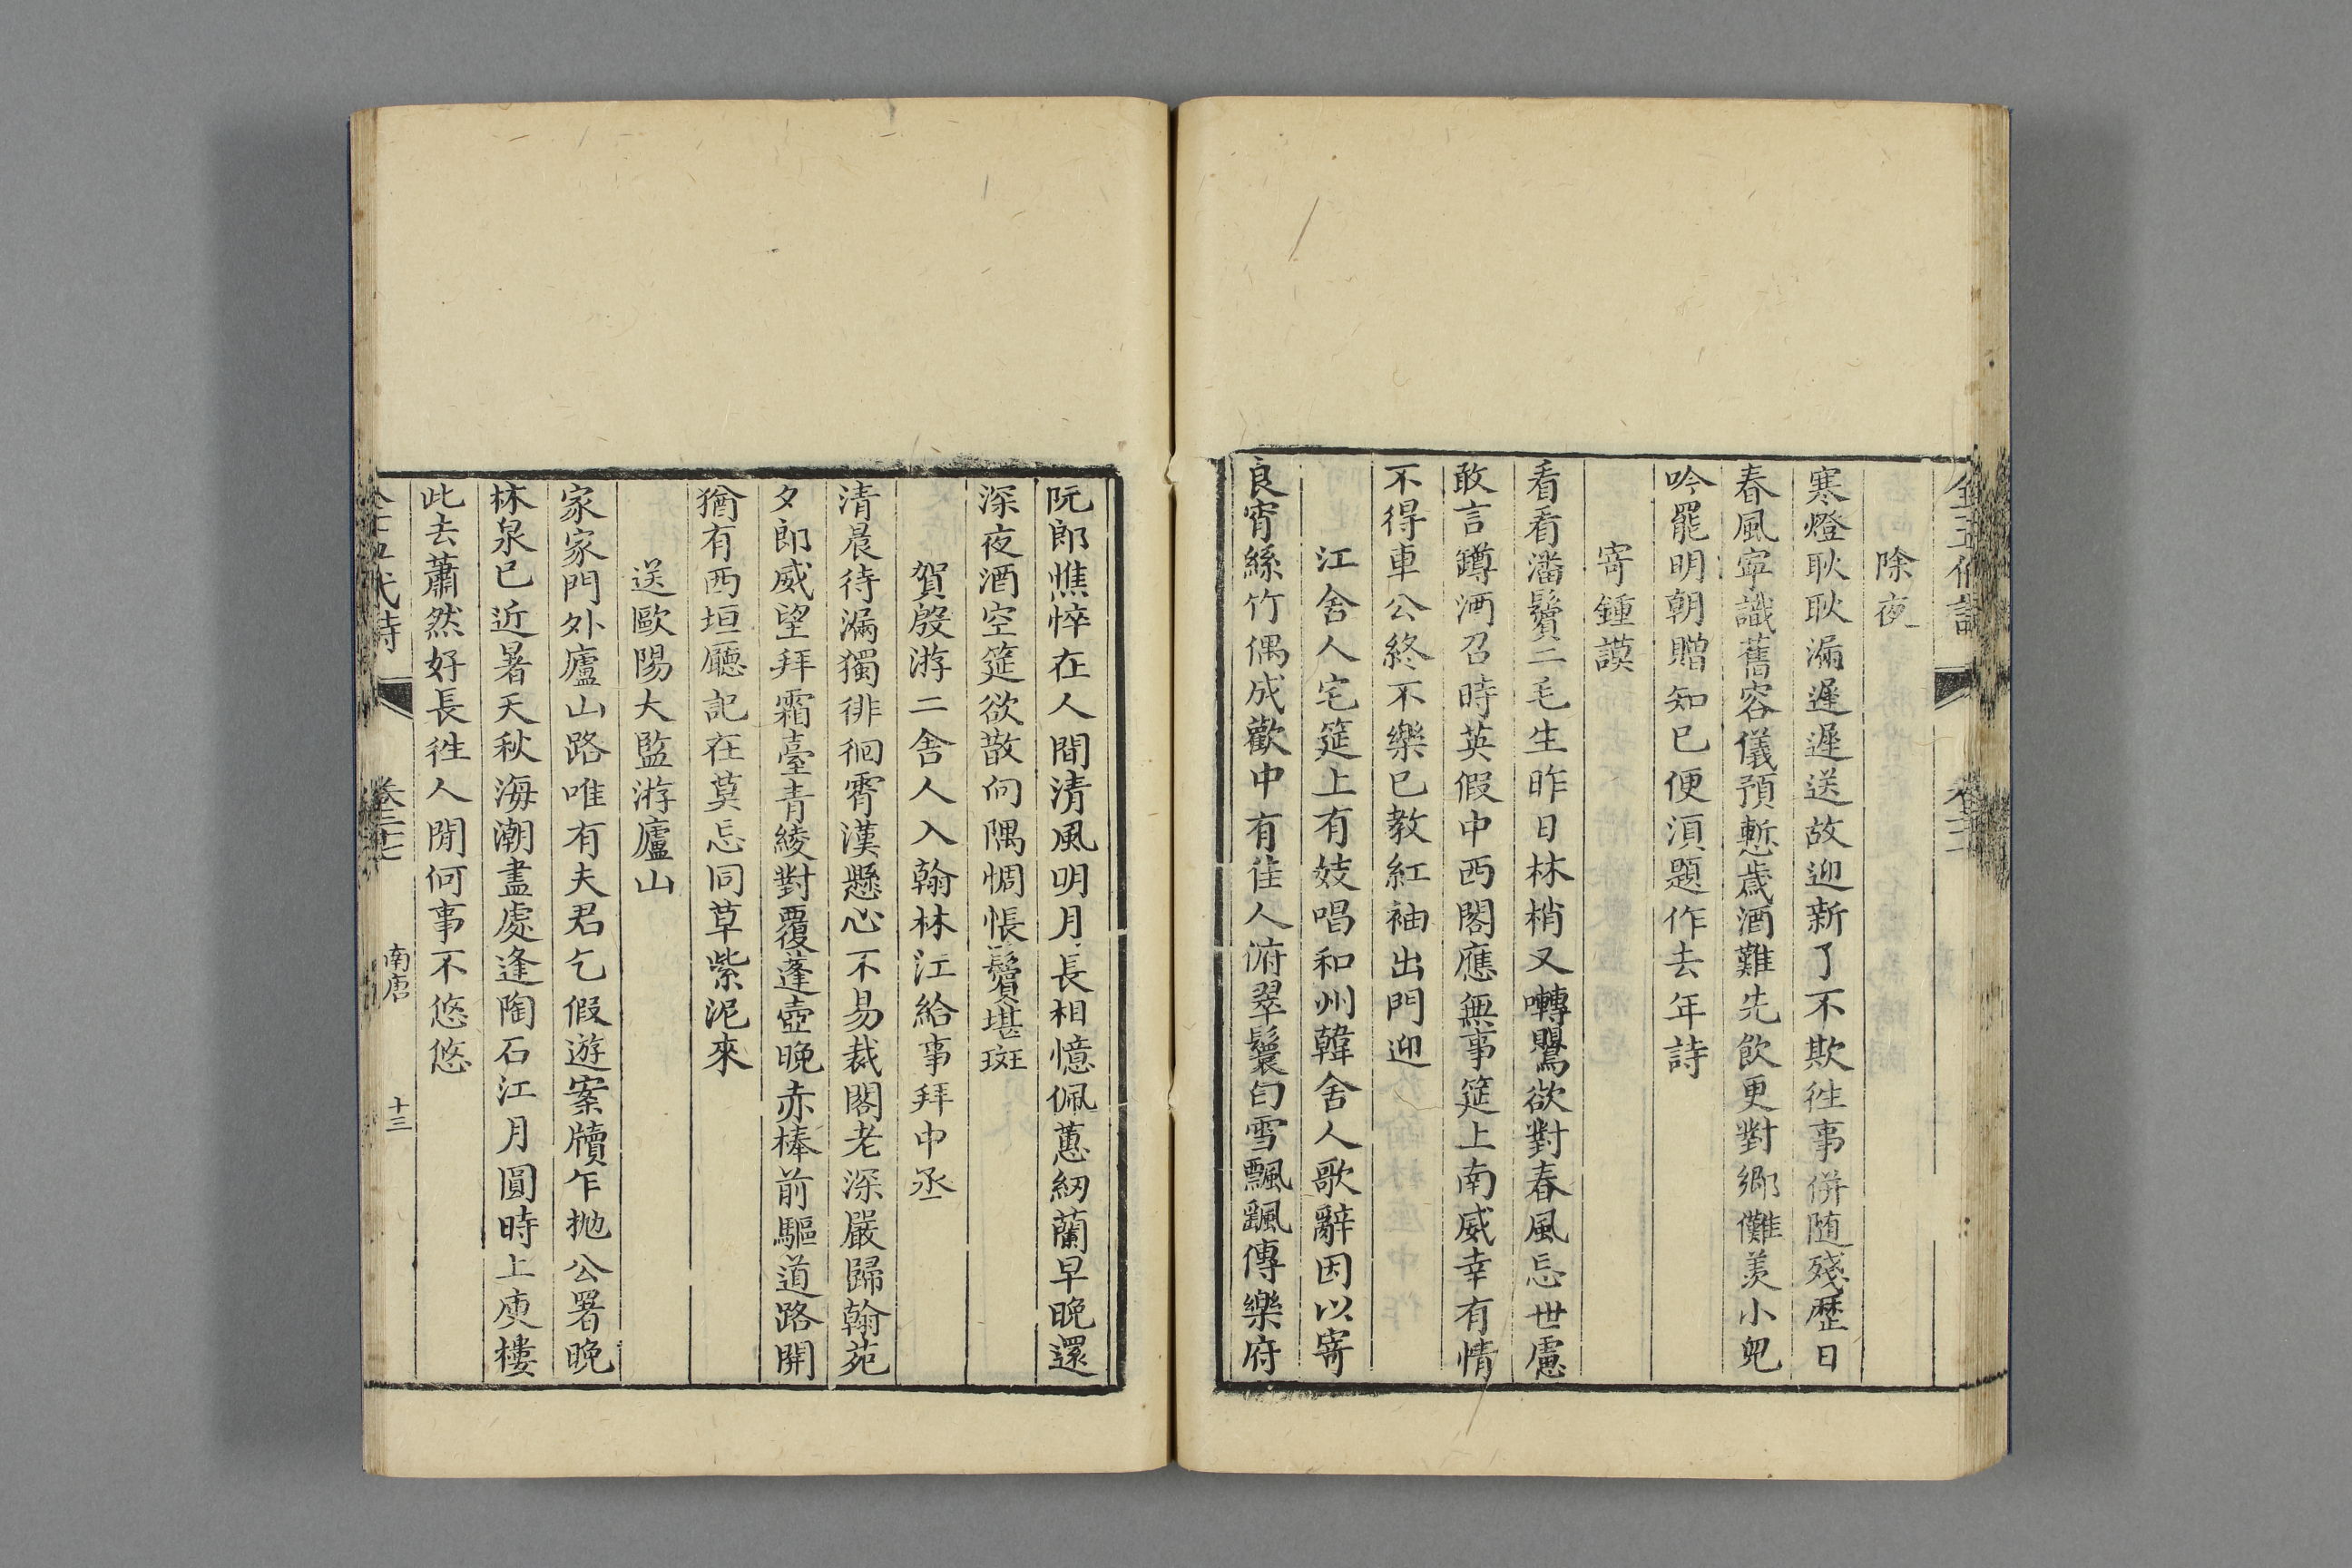 除夜
寒燈耿耿漏遲遲送故迎新了不欺徃事併随殘歷日
春風寧識舊容儀預慙歲酒難先飲更對鄉儺羨小兒
吟罷明朝贈知已便湏題作去年詩
寄鍾謨
看看潘鬢二毛生昨日林梢又囀鸎欲對春風忘世慮
敢言罇洒召時英假中西閣應無事筵上南威幸有情
不得車公終不樂已教紅袖出門迎
江舍人宅筵上有妓唱和州韓舍人歌辭因以寄
良宵絲竹偶成歡中有佳人俯翠鬟白雪飄颻傳樂府
阮郎憔悴在人間清風明月長相憶佩蕙紉蘭早晚還
深夜酒空筵欲散向隅惆悵鬢堪斑
賀殷游二舍人入翰林江給事拜中丞
清晨待漏獨徘徊霄漢懸心不易裁閣老深嚴歸翰苑
夕郎威望拜霜臺青綾對覆蓬壺晚赤棒前驅道路開
猶有西垣廳記在莫忘同草紫泥來
送歐陽大監游廬山
家家門外廬山路唯有夫君乞假遊案牘乍拋公署晚
林泉已近暑天秋海潮盡處逢陶石江月圓時上庾樓
此去蕭然好長徃人間何事不悠悠
全五代詩 卷三十七 南唐 十三